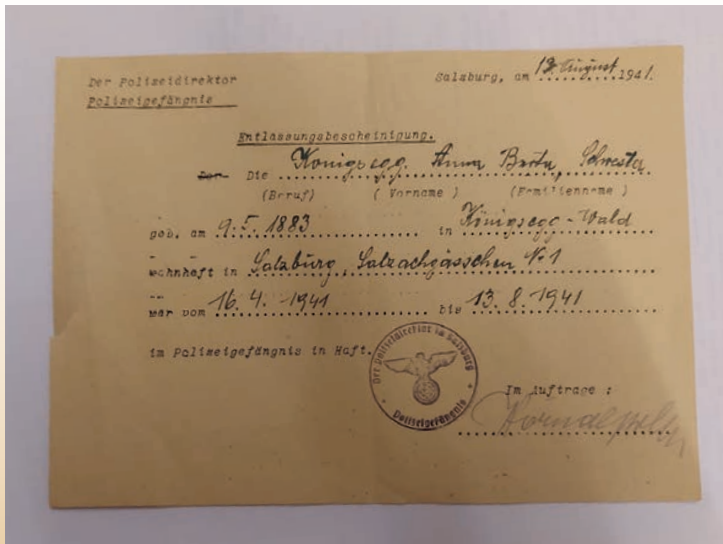 Der Polizeidirektor
Polizeigefängnis
Salzburg, am 13. August 1941.
Entlassungsbescheinigung.
Der Die Königsegg. Anna Berta, Schwester
(Beruf) (Vorname) (Familienname)
geb. am 9.5. 1883 in Königsegg-Wald
wohnhaft in Salzburg, Salzachgässchen No 1
war vom 16.4.-1941 bis 13.8.1941
im Polizeigefängnis in Haft.
Der Polizeidirektor in Salzburg
Polizeigefängnis
Im Auftrage :